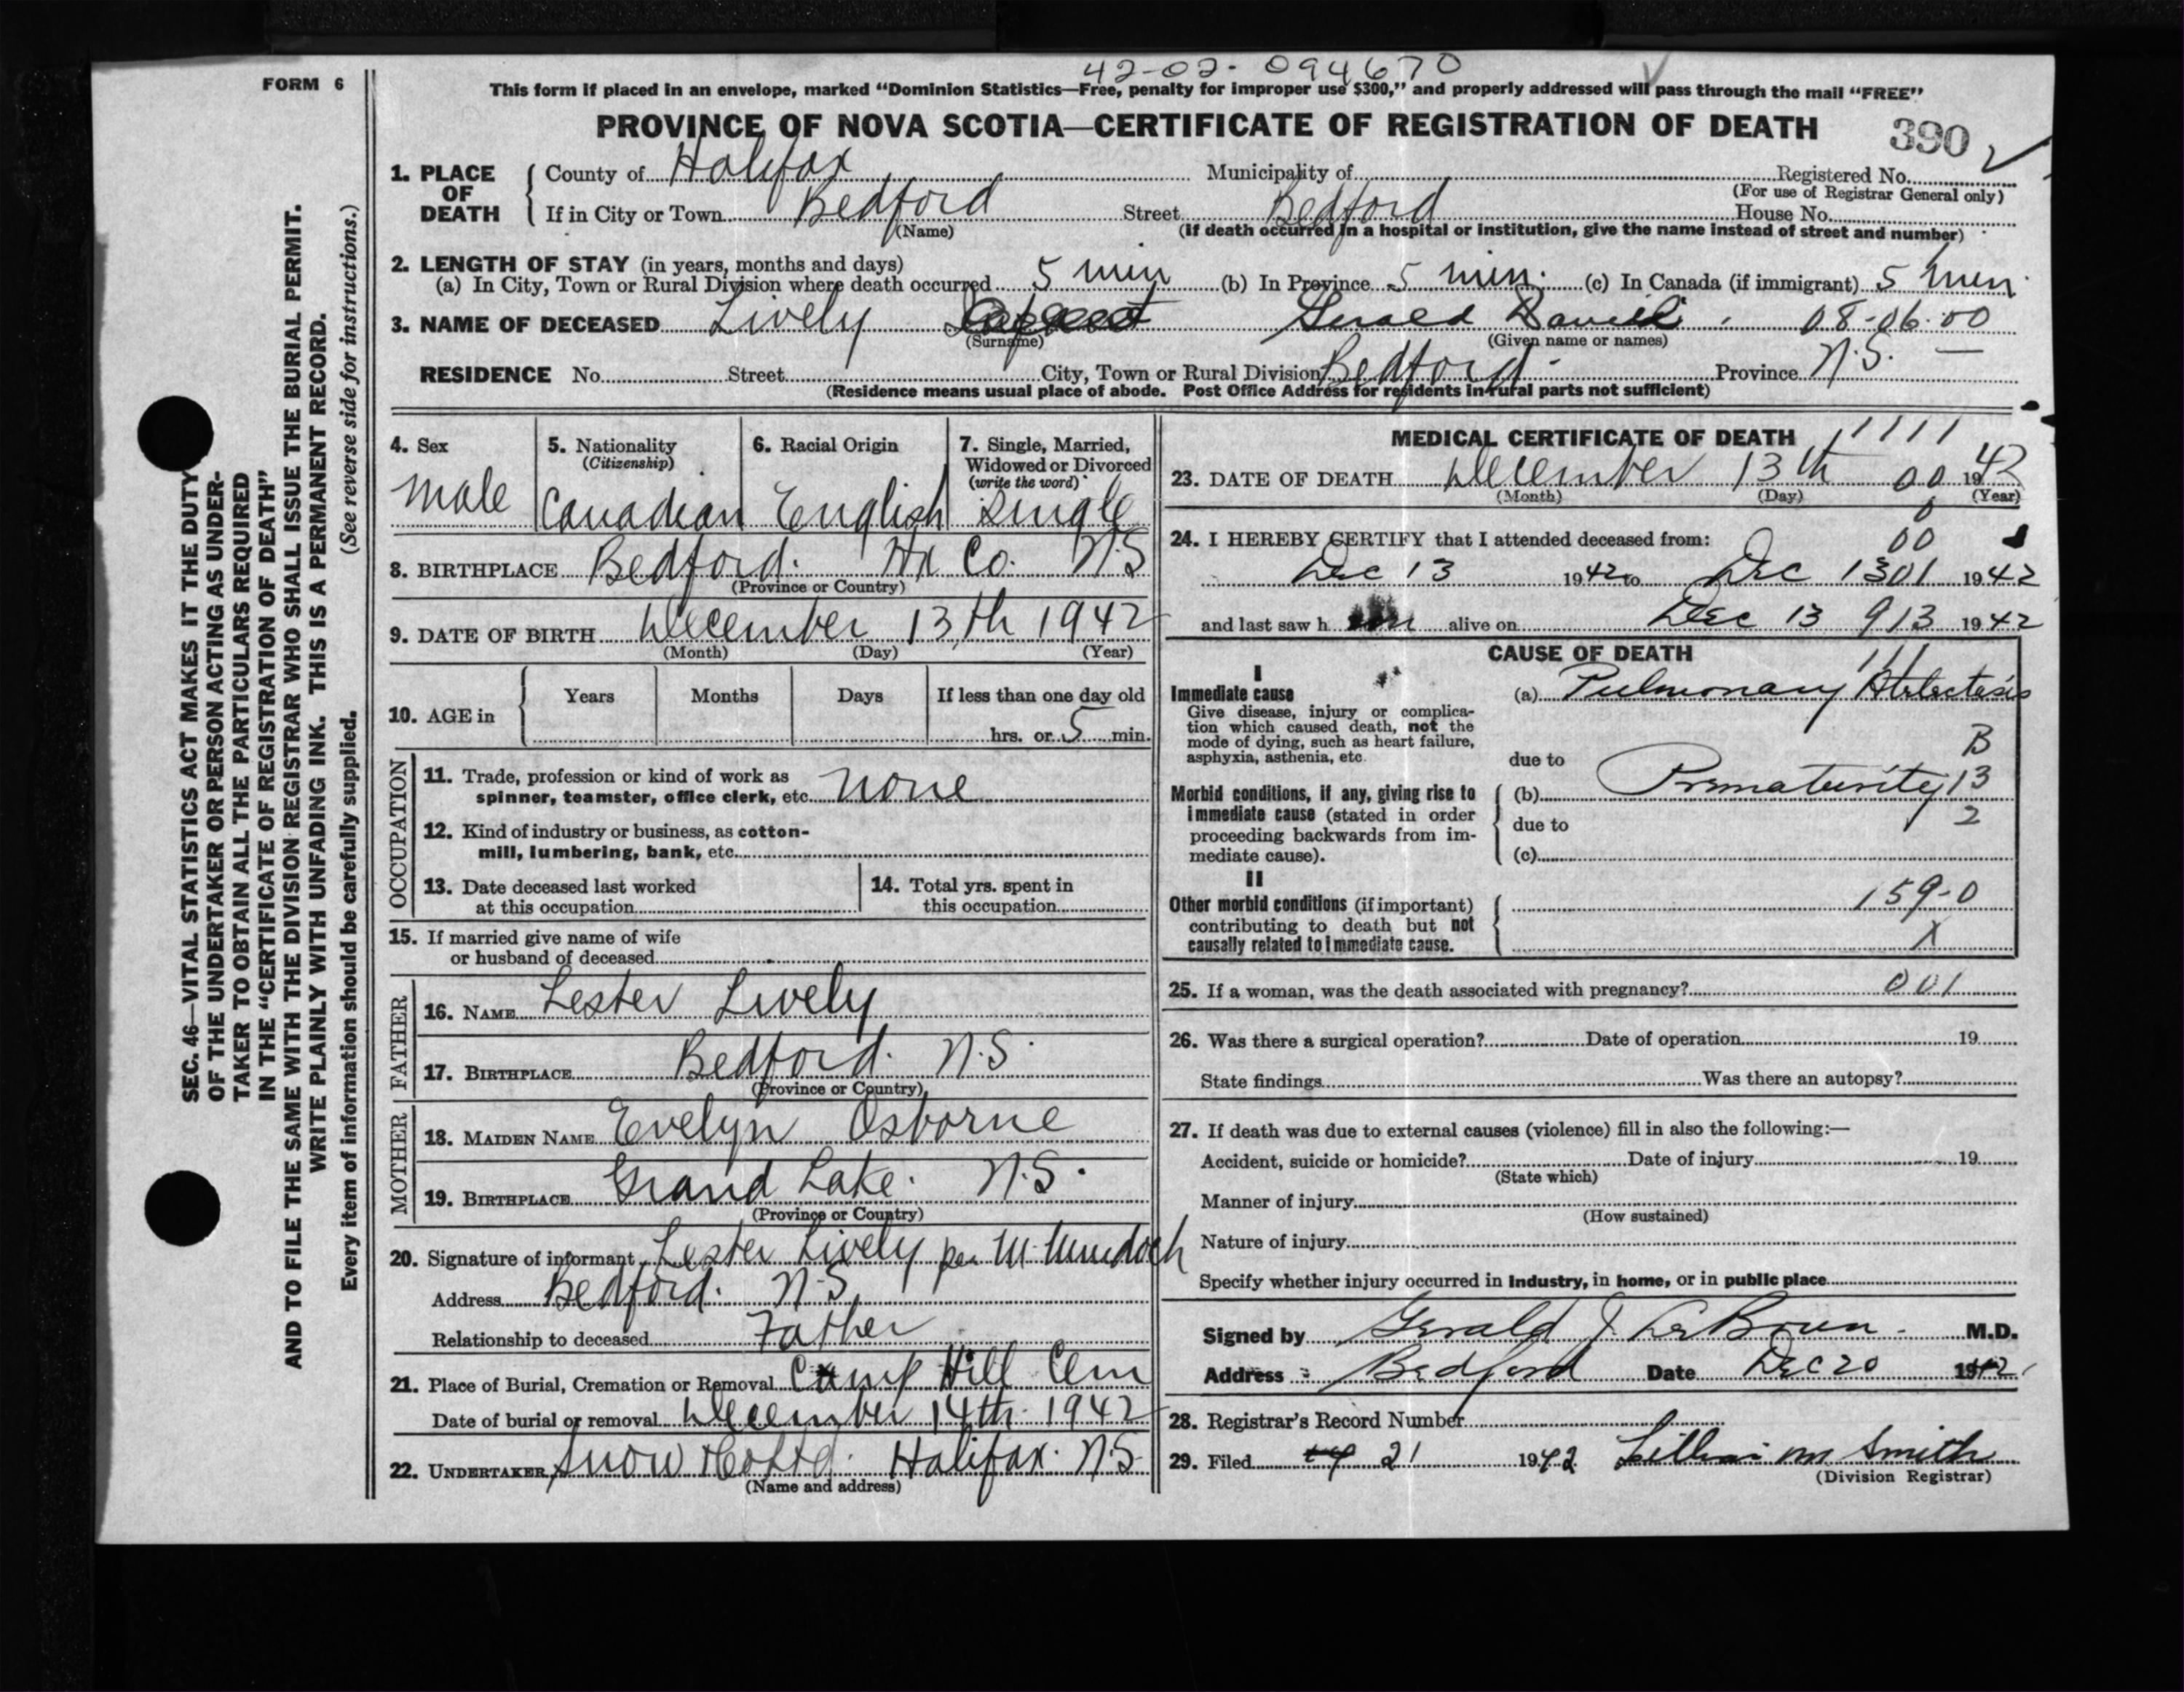 42-02-094670
FORM 6
This form if placed in an envelope, marked “Dominion Statistics—Free, penalty for improper use $300,” and properly addressed will pass through the mail “FREE”
PROVINCE OF NOVA SCOTIA—CERTIFICATE OF REGISTRATION OF DEATH 390
1. PLACE OF DEATH
County of Halifax Municipality of Registered No.
(For use of Registrar General only)
If in City or Town Bedford Street Bedford House No.
(Name) (if death occurred in a hospital or institution, give the name instead of street and number)
2. LENGTH OF STAY (in years, months and days)
(a) In City, Town or Rural Division where death occurred 5 min (b) In Province 5 min. (c) In Canada (if immigrant) 5 min.
3. NAME OF DECEASED Lively Gerald Daniel 08-06-00
(Surname) (Given name or names)
RESIDENCE No. Street City, Town or Rural Division Bedford Province N.S.
(Residence means usual place of abode. Post Office Address for residents in rural parts not sufficient)
4. Sex
male
5. Nationality
(Citizenship)
Canadian
6. Racial Origin
English
7. Single, Married,
Widowed or Divorced
(write the word)
Single
8. BIRTHPLACE Bedford. Hx Co. N.S
(Province or Country)
9. DATE OF BIRTH December 13th 1942
(Month) (Day) (Year)
10. AGE in
Years Months Days If less than one day old
hrs. or 5 min.
OCCUPATION
11. Trade, profession or kind of work as
spinner, teamster, office clerk, etc. none
12. Kind of industry or business, as cotton-
mill, lumbering, bank, etc.
13. Date deceased last worked
at this occupation
14. Total yrs. spent in
this occupation
15. If married give name of wife
or husband of deceased
FATHER
16. NAME Lester Lively
17. BIRTHPLACE Bedford. N.S.
(Province or Country)
MOTHER
18. MAIDEN NAME Evelyn Osborne
19. BIRTHPLACE Grand Lake. N.S.
(Province or Country)
20. Signature of informant Lester Lively per M. Murdoch
Address Bedford. N.S.
Relationship to deceased Father
21. Place of Burial, Cremation or Removal Camp Hill Cem
Date of burial or removal December 14th 1942
22. UNDERTAKER Snow Halifax. N.S.
(Name and address)
MEDICAL CERTIFICATE OF DEATH 1111
23. DATE OF DEATH December 13th 00 1942
(Month) (Day) (Year)
24. I HEREBY CERTIFY that I attended deceased from: 00
Dec 13 1942 to Dec 13 01 1942
and last saw h im alive on Dec 13 913 1942
CAUSE OF DEATH
111
I
Immediate cause
Give disease, injury or complica-
tion which caused death, not the
mode of dying, such as heart failure,
asphyxia, asthenia, etc.
(a) Pulmonary Atelectasis
B
due to
Morbid conditions, if any, giving rise to
immediate cause (stated in order
proceeding backwards from im-
mediate cause).
(b) Prematurity 13
due to 2
(c)
II
Other morbid conditions (if important)
contributing to death but not
causally related to immediate cause.
159-0
X
25. If a woman, was the death associated with pregnancy? 001
26. Was there a surgical operation? Date of operation 19
State findings Was there an autopsy?
27. If death was due to external causes (violence) fill in also the following:—
Accident, suicide or homicide? Date of injury 19
(State which)
Manner of injury
(How sustained)
Nature of injury
Specify whether injury occurred in industry, in home, or in public place
Signed by Gerald J. LeBrun M.D.
Address Bedford Date Dec 20 1942
28. Registrar's Record Number
29. Filed 21 1942 Lillian M. Smith
(Division Registrar)
SEC. 46—VITAL STATISTICS ACT MAKES IT THE DUTY
OF THE UNDERTAKER OR PERSON ACTING AS UNDER-
TAKER TO OBTAIN ALL THE PARTICULARS REQUIRED
IN THE “CERTIFICATE OF REGISTRATION OF DEATH”
AND TO FILE THE SAME WITH THE DIVISION REGISTRAR WHO SHALL ISSUE THE BURIAL PERMIT.
WRITE PLAINLY WITH UNFADING INK. THIS IS A PERMANENT RECORD.
Every item of information should be carefully supplied. (See reverse side for instructions.)